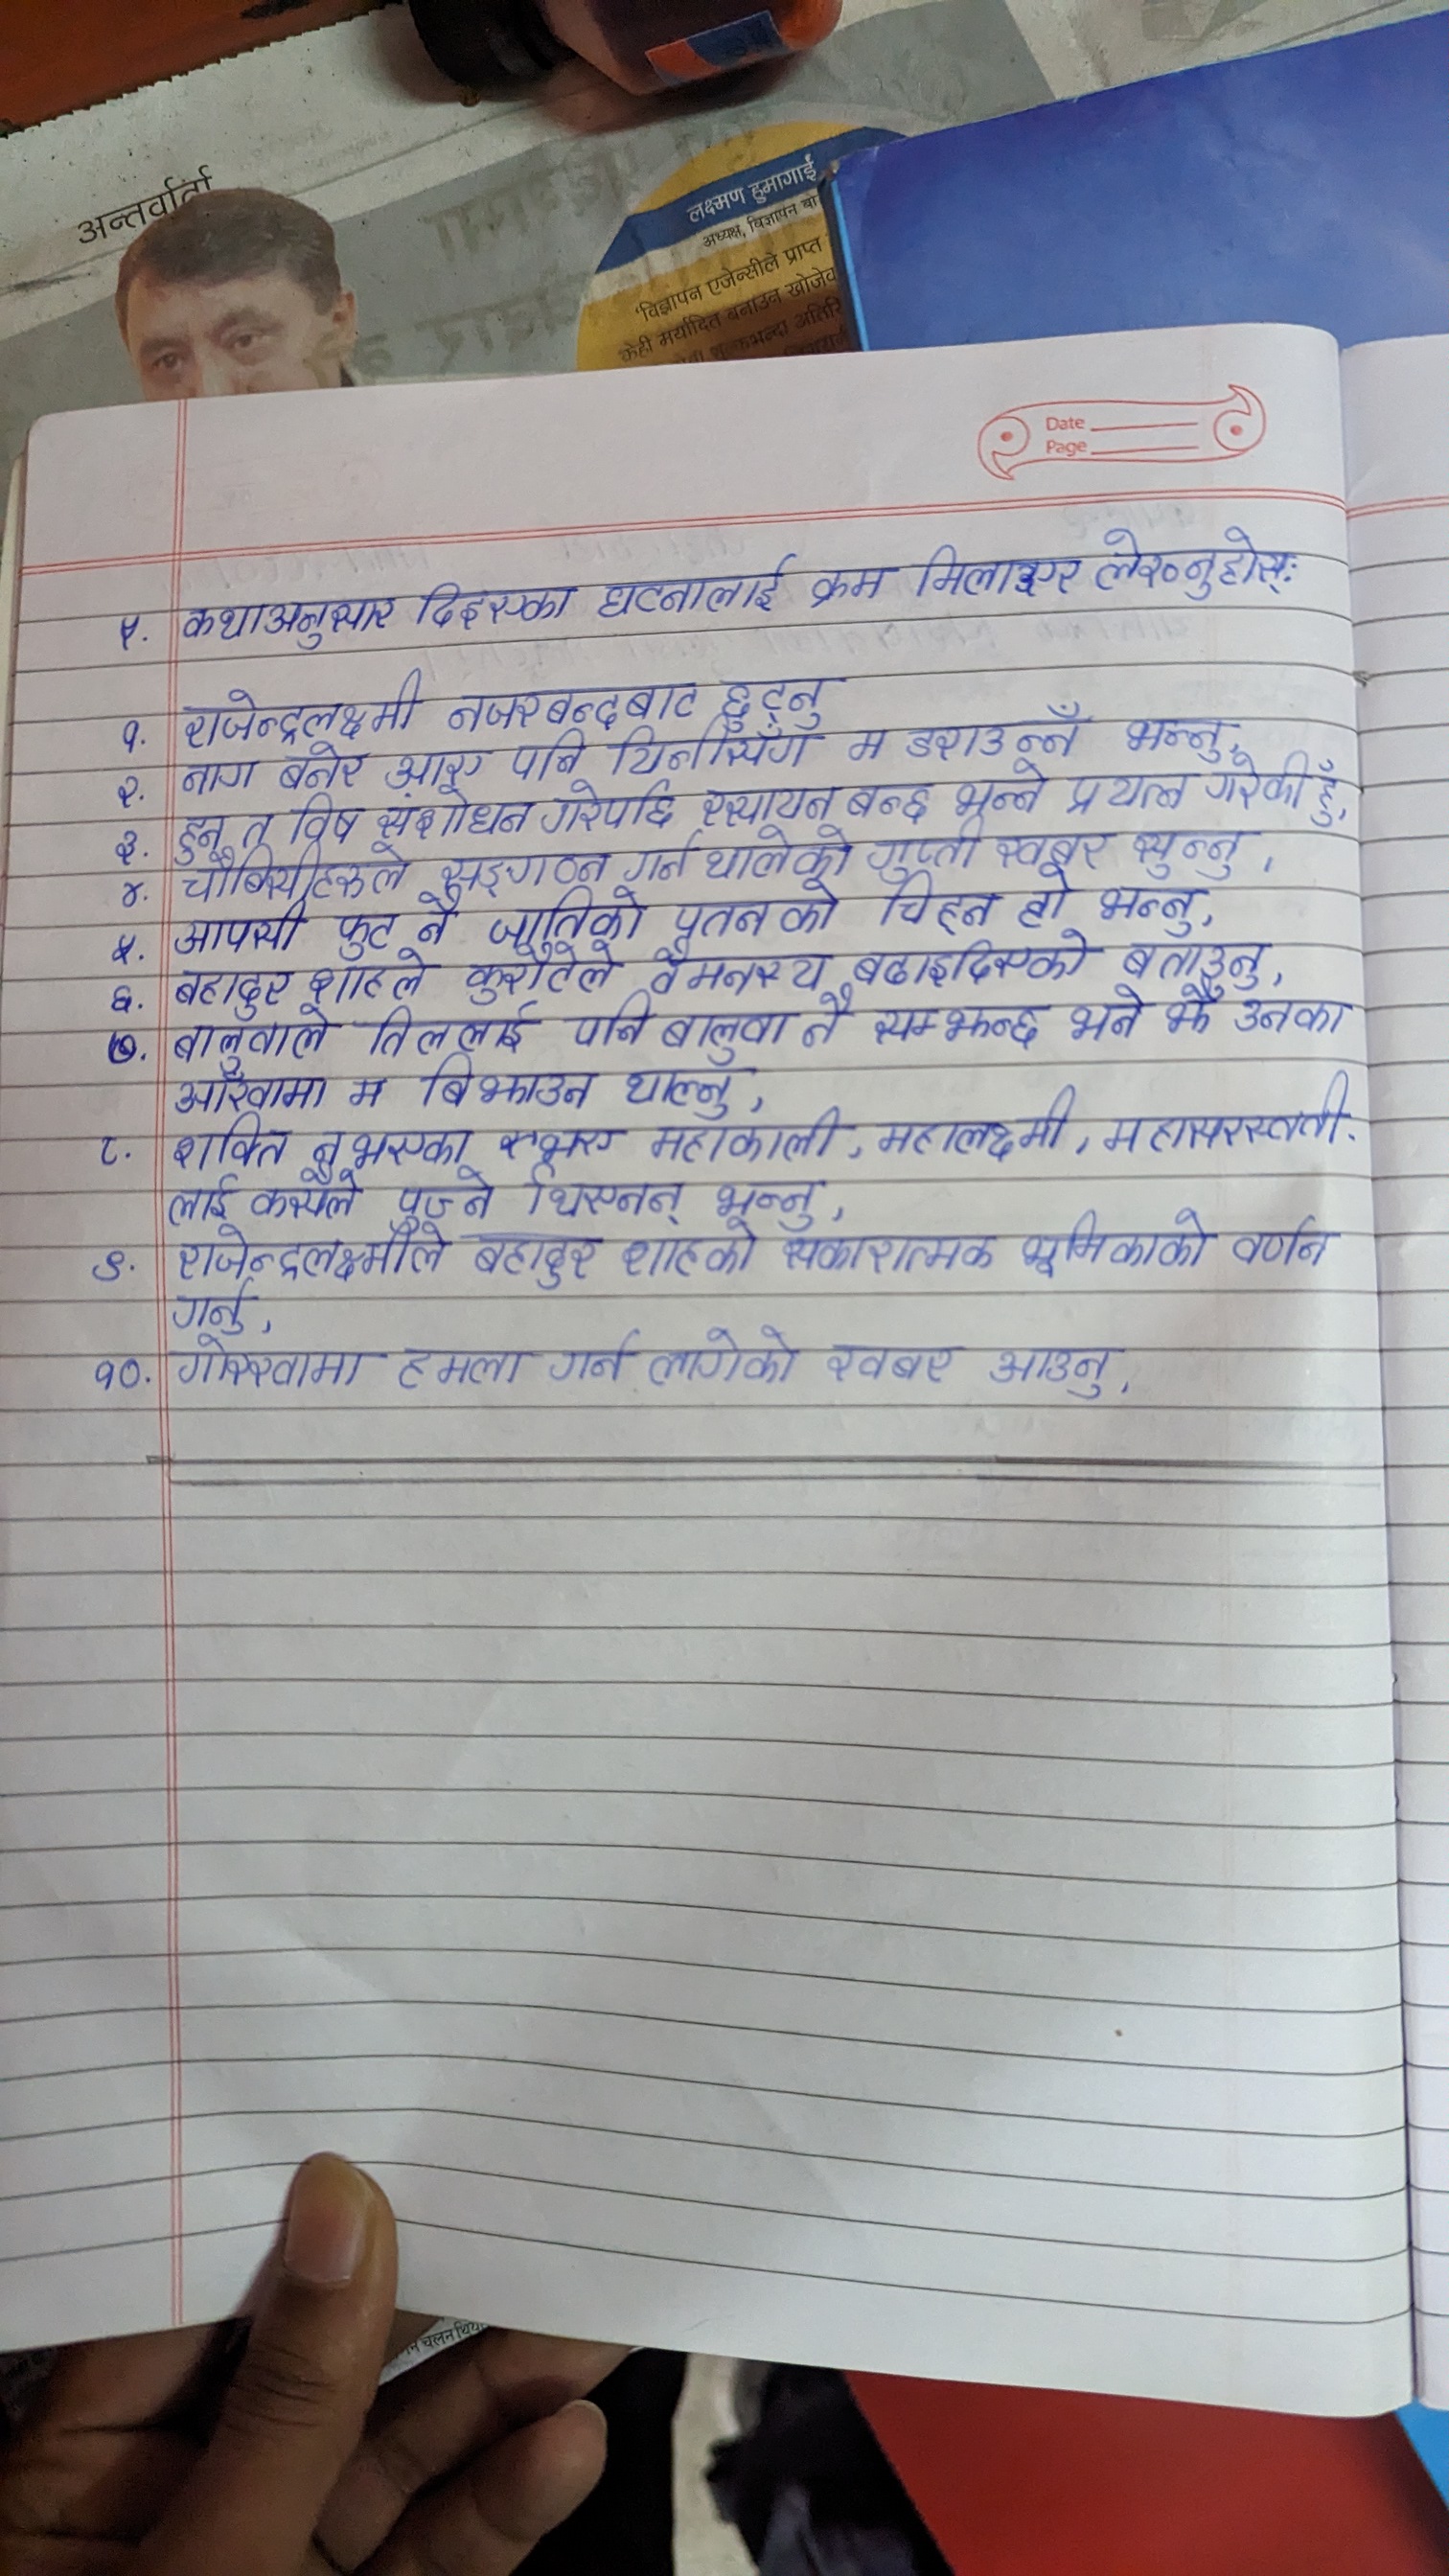 अन्तर्वार्ता
लक्ष्मण हुमागाईं
अध्यक्ष, विज्ञापन बो
'विज्ञापन एजेन्सीले प्राप्त
केही मर्यादित बनाउन खोजेक
भन्दा अतिरि
Date
Page
५. कथाअनुसार दिइएका घटनालाई क्रम मिलाइएर लेख्नुहोस्:
१. राजेन्द्रलक्ष्मी नजरबन्दबाट छुट्नु
२. नाग बनेर आए पनि यिनीसँग म डराउन्नँ भन्नु,
३. हुन त विष संशोधन गरेपछि रसायन बन्छ भन्ने प्रयत्न गरेकी हुँ,
४. चौबिसीहरूले सङ्गठन गर्न थालेको गुप्ती खबर सुन्नु,
५. आपसी फुट नै जातिको पतनको चिह्न हो भन्नु,
६. बहादुर शाहले कुरौटेले वैमनस्य बढाइदिएको बताउनु,
७. बालुवाले तिललाई पनि बालुवा नै सम्झन्छ भने झैँ उनका
आँखामा म बिझाउन थाल्नु,
८. शक्ति नभएका भए महाकाली, महालक्ष्मी, महासरस्वती.
लाई कसैले पुज्ने थिएनन् भन्नु,
९. राजेन्द्रलक्ष्मीले बहादुर शाहको सकारात्मक भूमिकाको वर्णन
गर्नु,
१०. गोरखामा हमला गर्न लागेको खबर आउनु,
चलन थिय